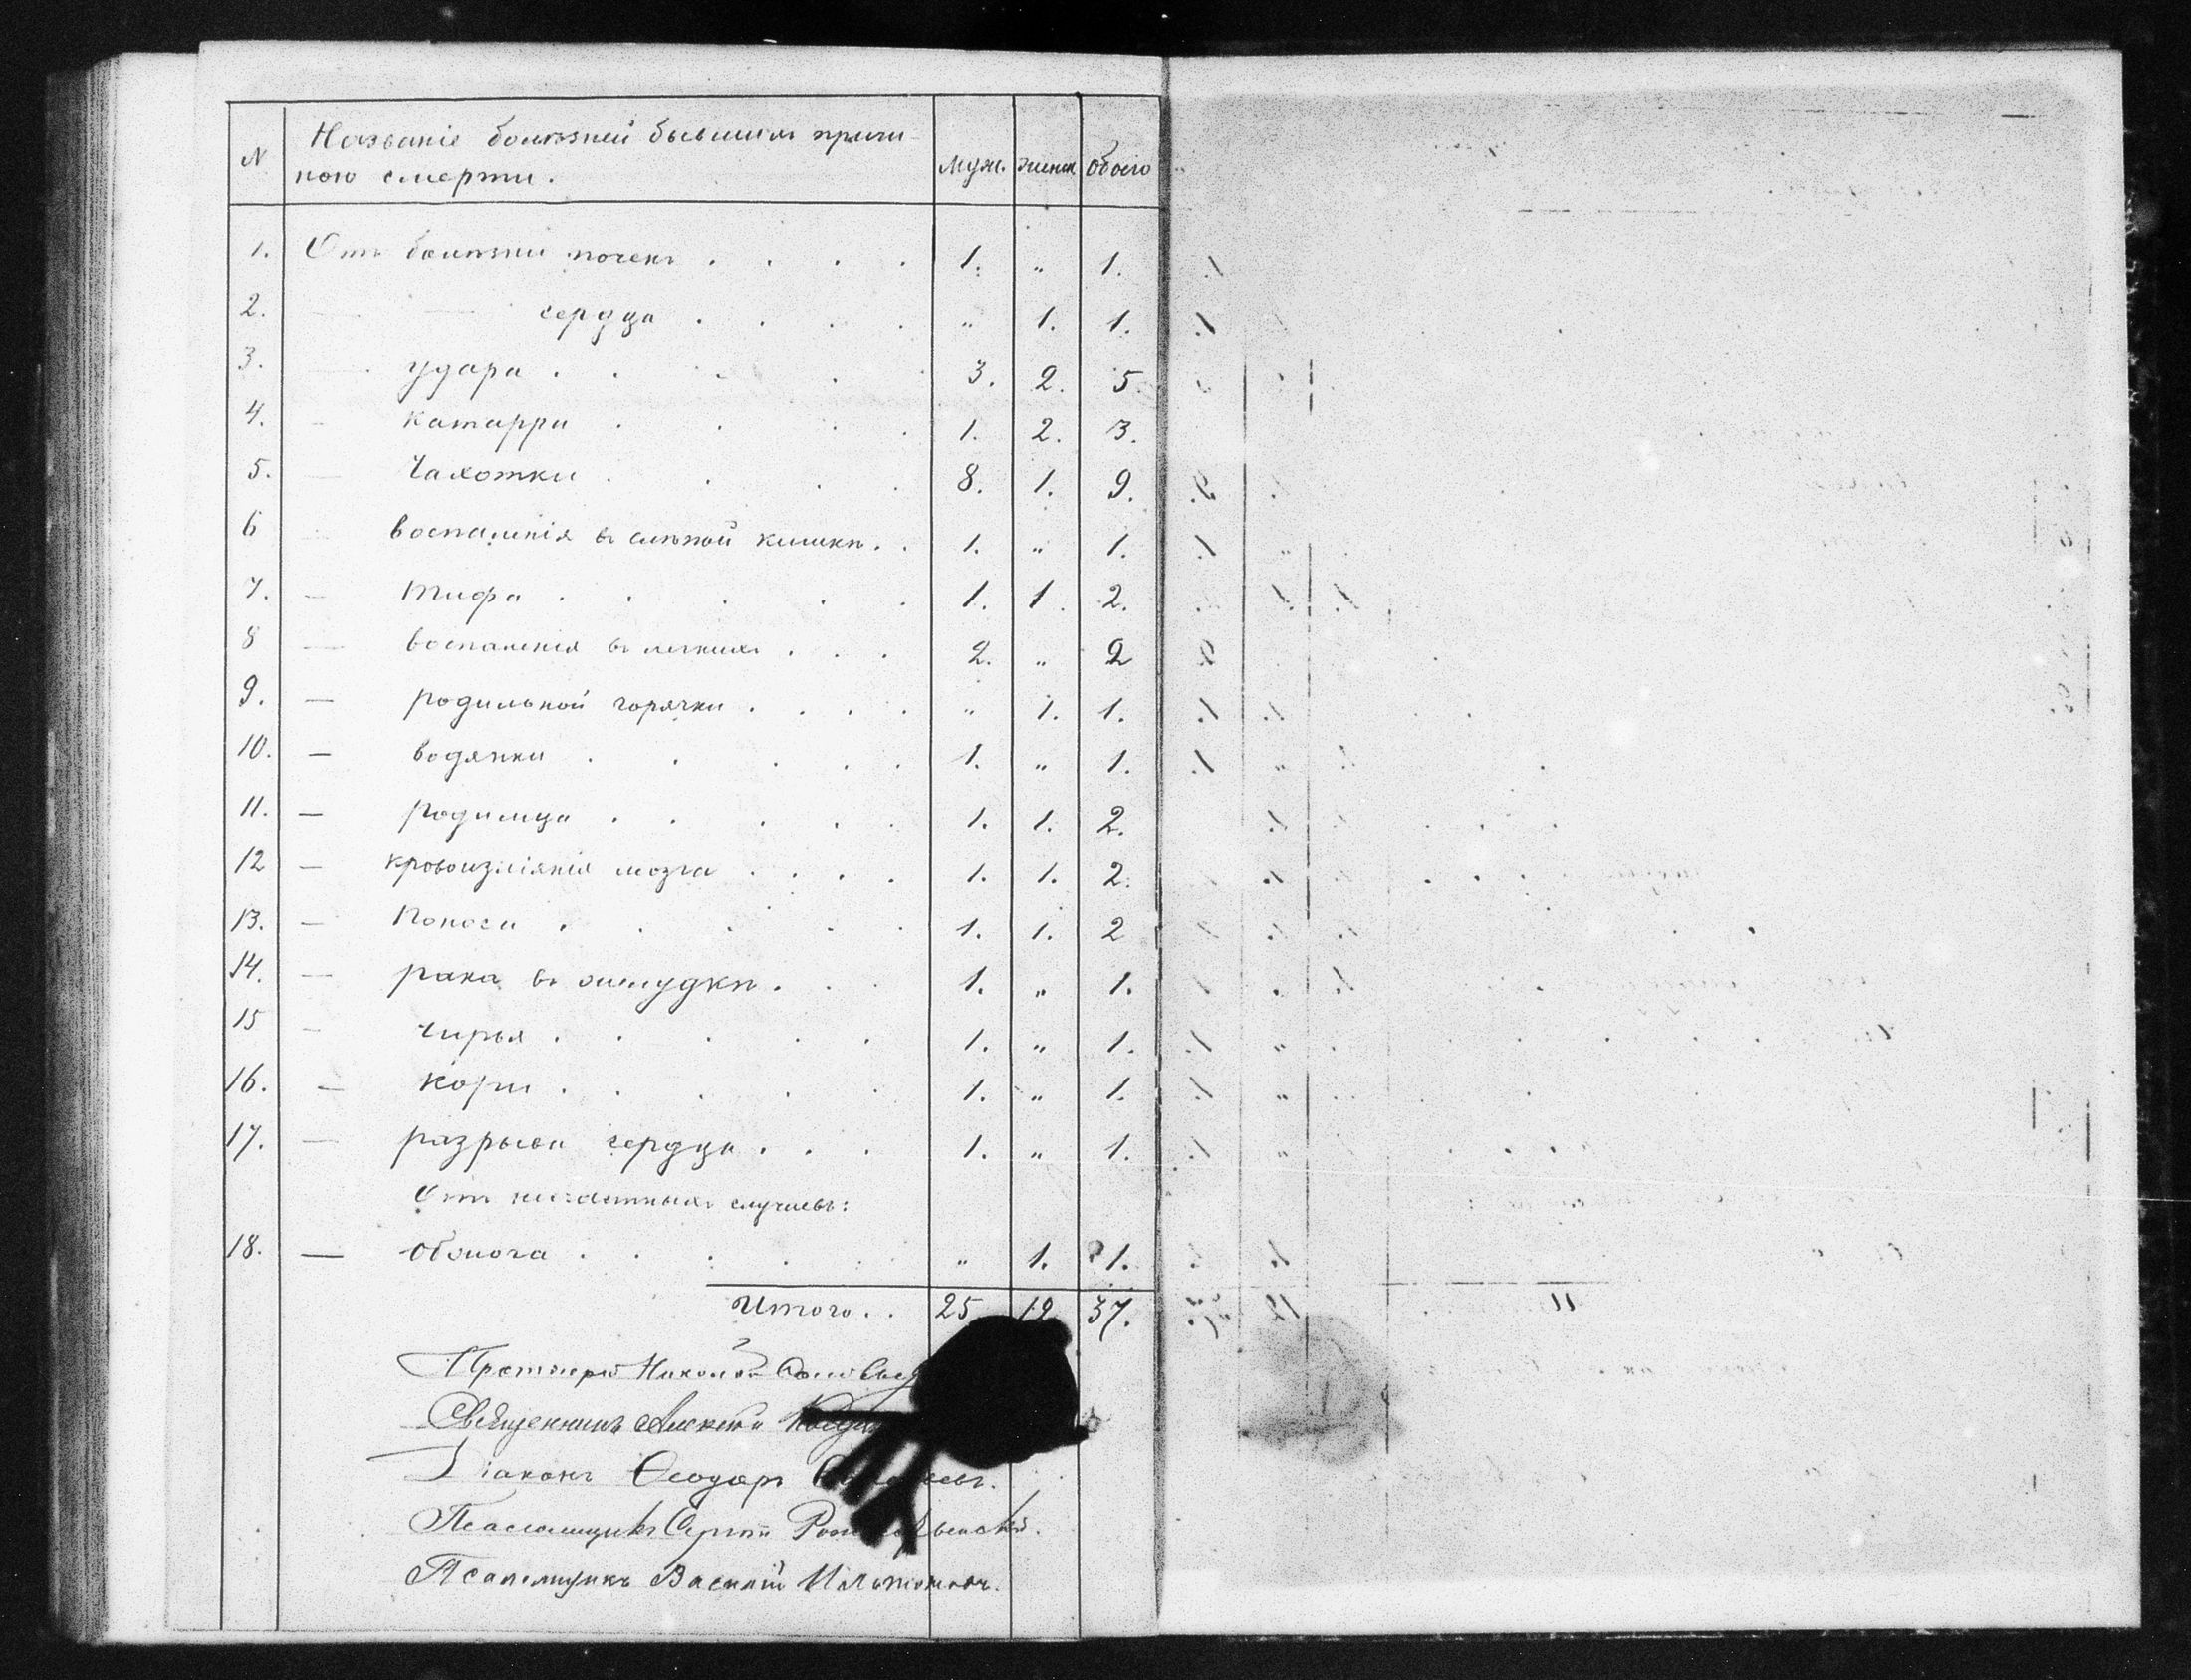 N Названіе болѣзней бывшихъ причи- муж. женск. обоего
ною смерти.
1. Отъ болѣзни почекъ . . . . 1. " 1.
2. — — сердца . . . . " 1. 1.
3. — удара . . . . 3. 2. 5
4. — катарра . . . . 1. 2. 3.
5. — чахотки . . . . 8. 1. 9.
6 — воспаленія въ слѣпой кишкѣ . . 1. " 1.
7. — тифа . . . . . 1. 1. 2.
8 — воспаленія въ легкихъ . . . 2. " 2
9. — родильной горячки . . . . " 1. 1.
10. — водянки . . . . . 1. " 1.
11. — родимца . . . . . 1. 1. 2.
12 — кровоизліянія мозга . . . . 1. 1. 2.
13. — поноса . . . . . 1. 1. 2
14. — рака въ желудкѣ . . . 1. " 1.
15 — чирья . . . . . 1. " 1.
16. — кори . . . . . 1. " 1.
17. — разрыва сердца . . . 1. " 1.
Отъ несчастныхъ случаевъ:
18. — обжога . . . . . " 1. 1.
Итого . . 25 12 37.
Протоіерей Николай
Священникъ Алексѣй
Діаконъ Ѳеодоръ
Псаломщикъ Сергѣй
Псаломщикъ Василій